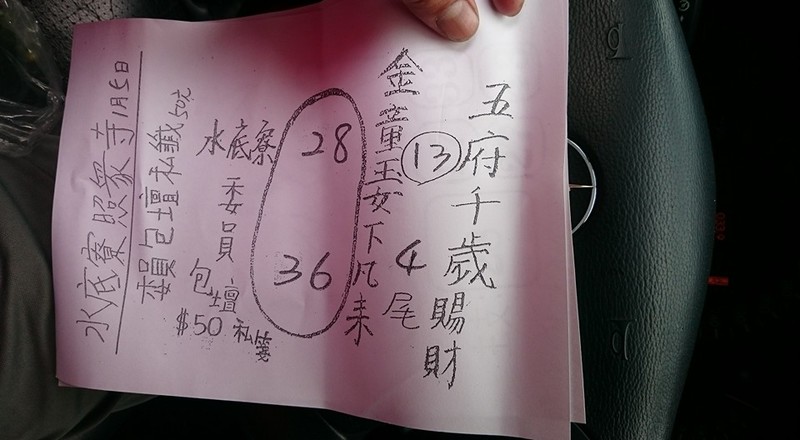 五府千歲賜財
13 4尾
金童玉女下凡来
28 36
水底寮
委員包壇
$50私箋
委員包壇私籤50元
水底寮照眾寺1月5日